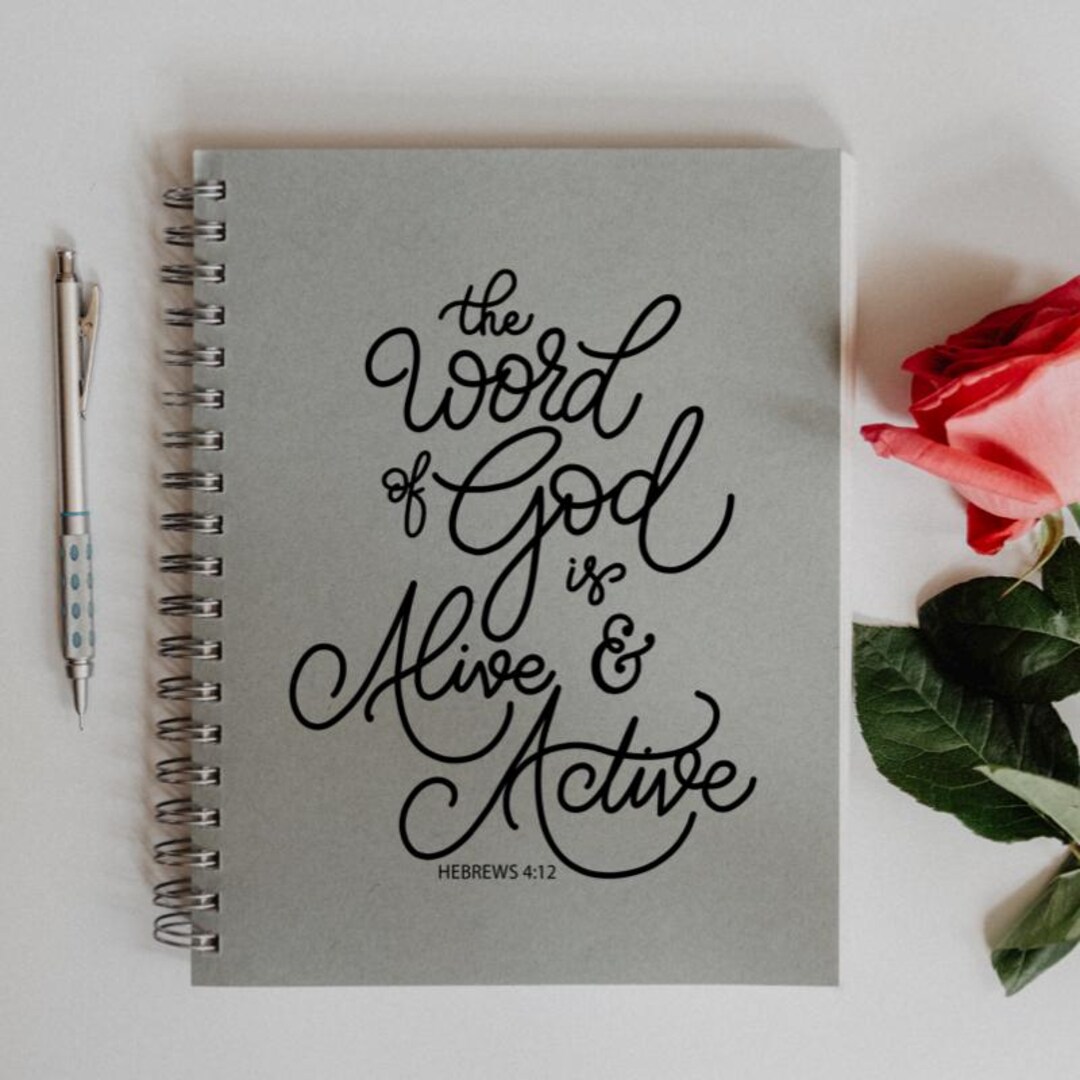 the
Word
of God
is
Alive &
Active
HEBREWS 4:12